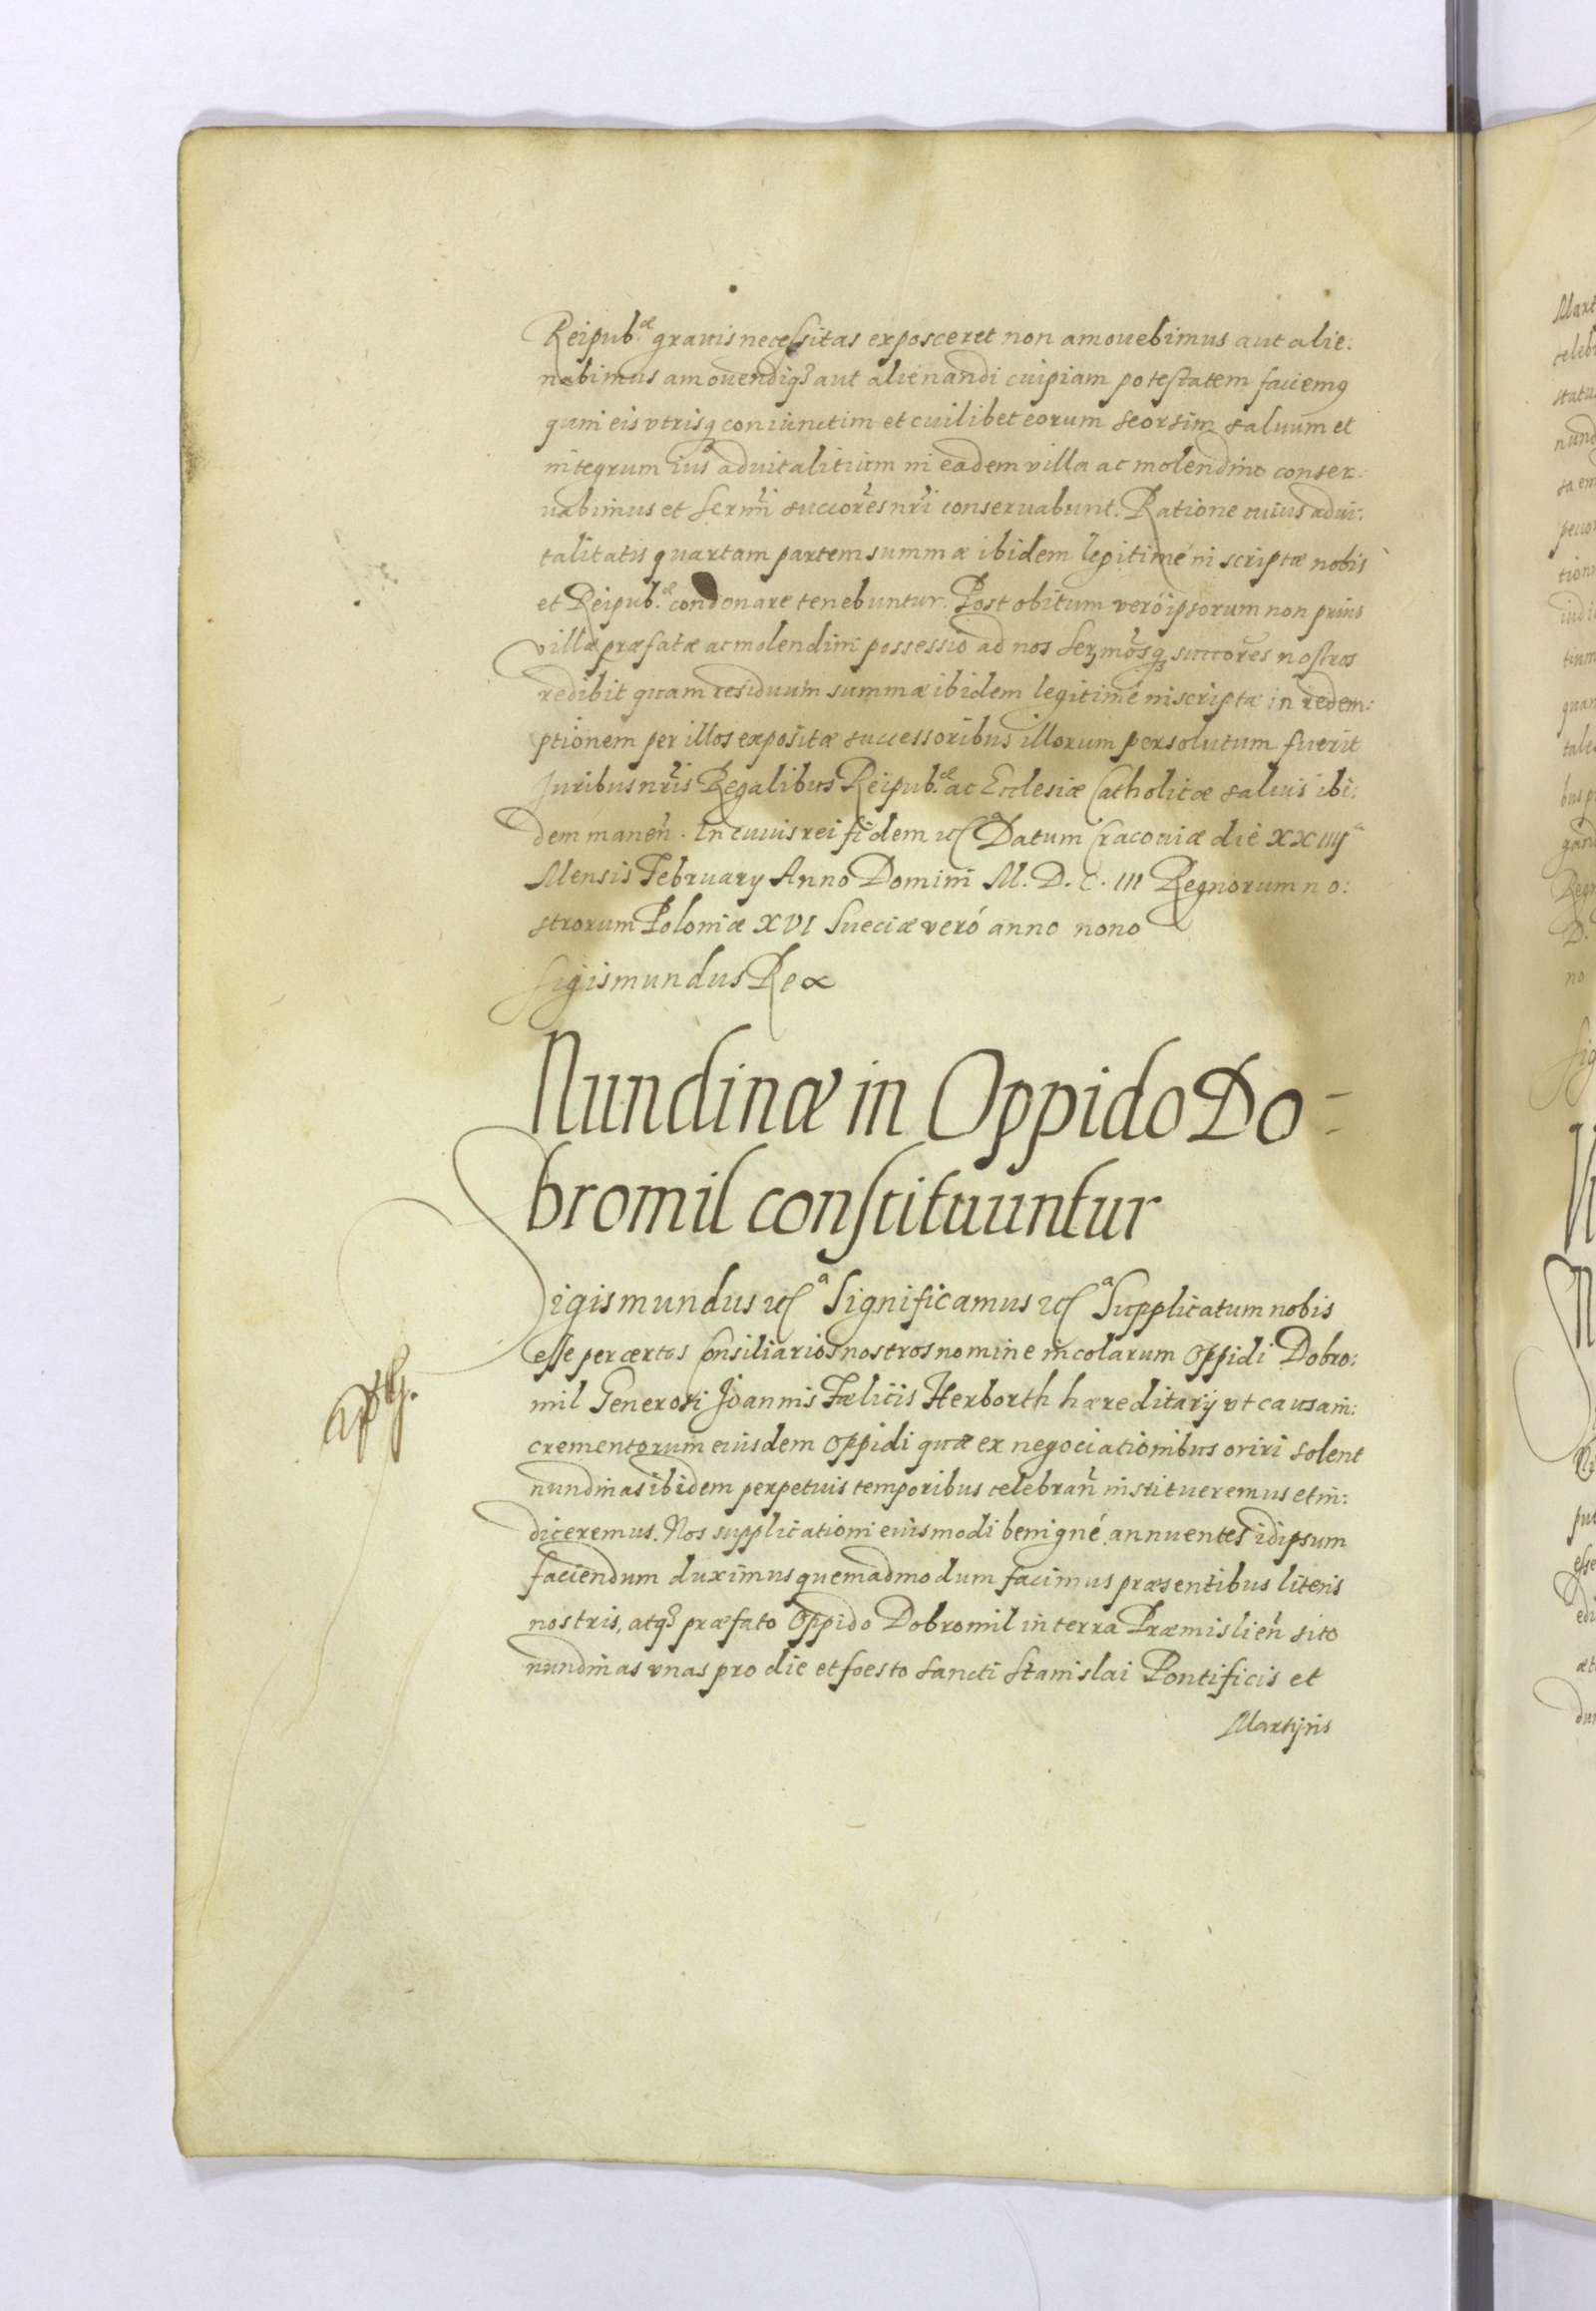 Reipub.æ grauis necessitas exposceret non amouebimus aut alie:
nabimus amouendiq3 aut alienandi cuipiam potestatem faciemq
quin eis vtrisq coniunctim et cuilibet eorum seorsim saluum et
integrum ius aduitalitium in eadem villa ac molendino conser:
uabimus et Sermi succores nri conseruabunt. Ratione cuius adui:
talitatis quartam partem summæ ibidem legitimé inscriptæ nobis
et Reipub.æ condonare tenebuntur. Post obitum veró ipsorum non prius
villæ præfatæ ac molendini possessio ad nos Sermosq3 succores nostros
redibit quam residuum summæ ibidem legitimé inscriptæ in redem:
ptionem per illos expositæ successoribus illorum persolutum fuerit
Juribus nris Regalibus Reipub.æ ac Ecclesiæ Catholicæ saluis ibi:
dem manen. In cuius rei fidem etc.a Datum Cracouiæ die XXIIIJa
Mensis February Anno Domini M.D.C.III Regnorum no:
strorum Poloniæ XVI Sueciæ veró anno nono
Sigismundus Rex
Nundinæ in Oppido Do=
bromil constituuntur
Sigismundus etc.a Significamus etc.a Supplicatum nobis
esse per certos Consiliarios nostros nomine incolarum Oppidi Dobro:
mil Generosi Joannis Fælicis Herborth hæreditarij vt causa in:
crementorum eiusdem Oppidi quæ ex negociationibus oriri solent
nundinas ibidem perpetuis temporibus celebran institueremus et in:
diceremus. Nos supplicationi euismodi benigné annuentes idipsum
faciendum duximus quemadmodum facimus præsentibus literis
nostris, atq3 præfato Oppido Dobromil in terra Præmislien sito
nundinas vnas pro die et foesto Sancti Stanislai Pontificis et
Martyris